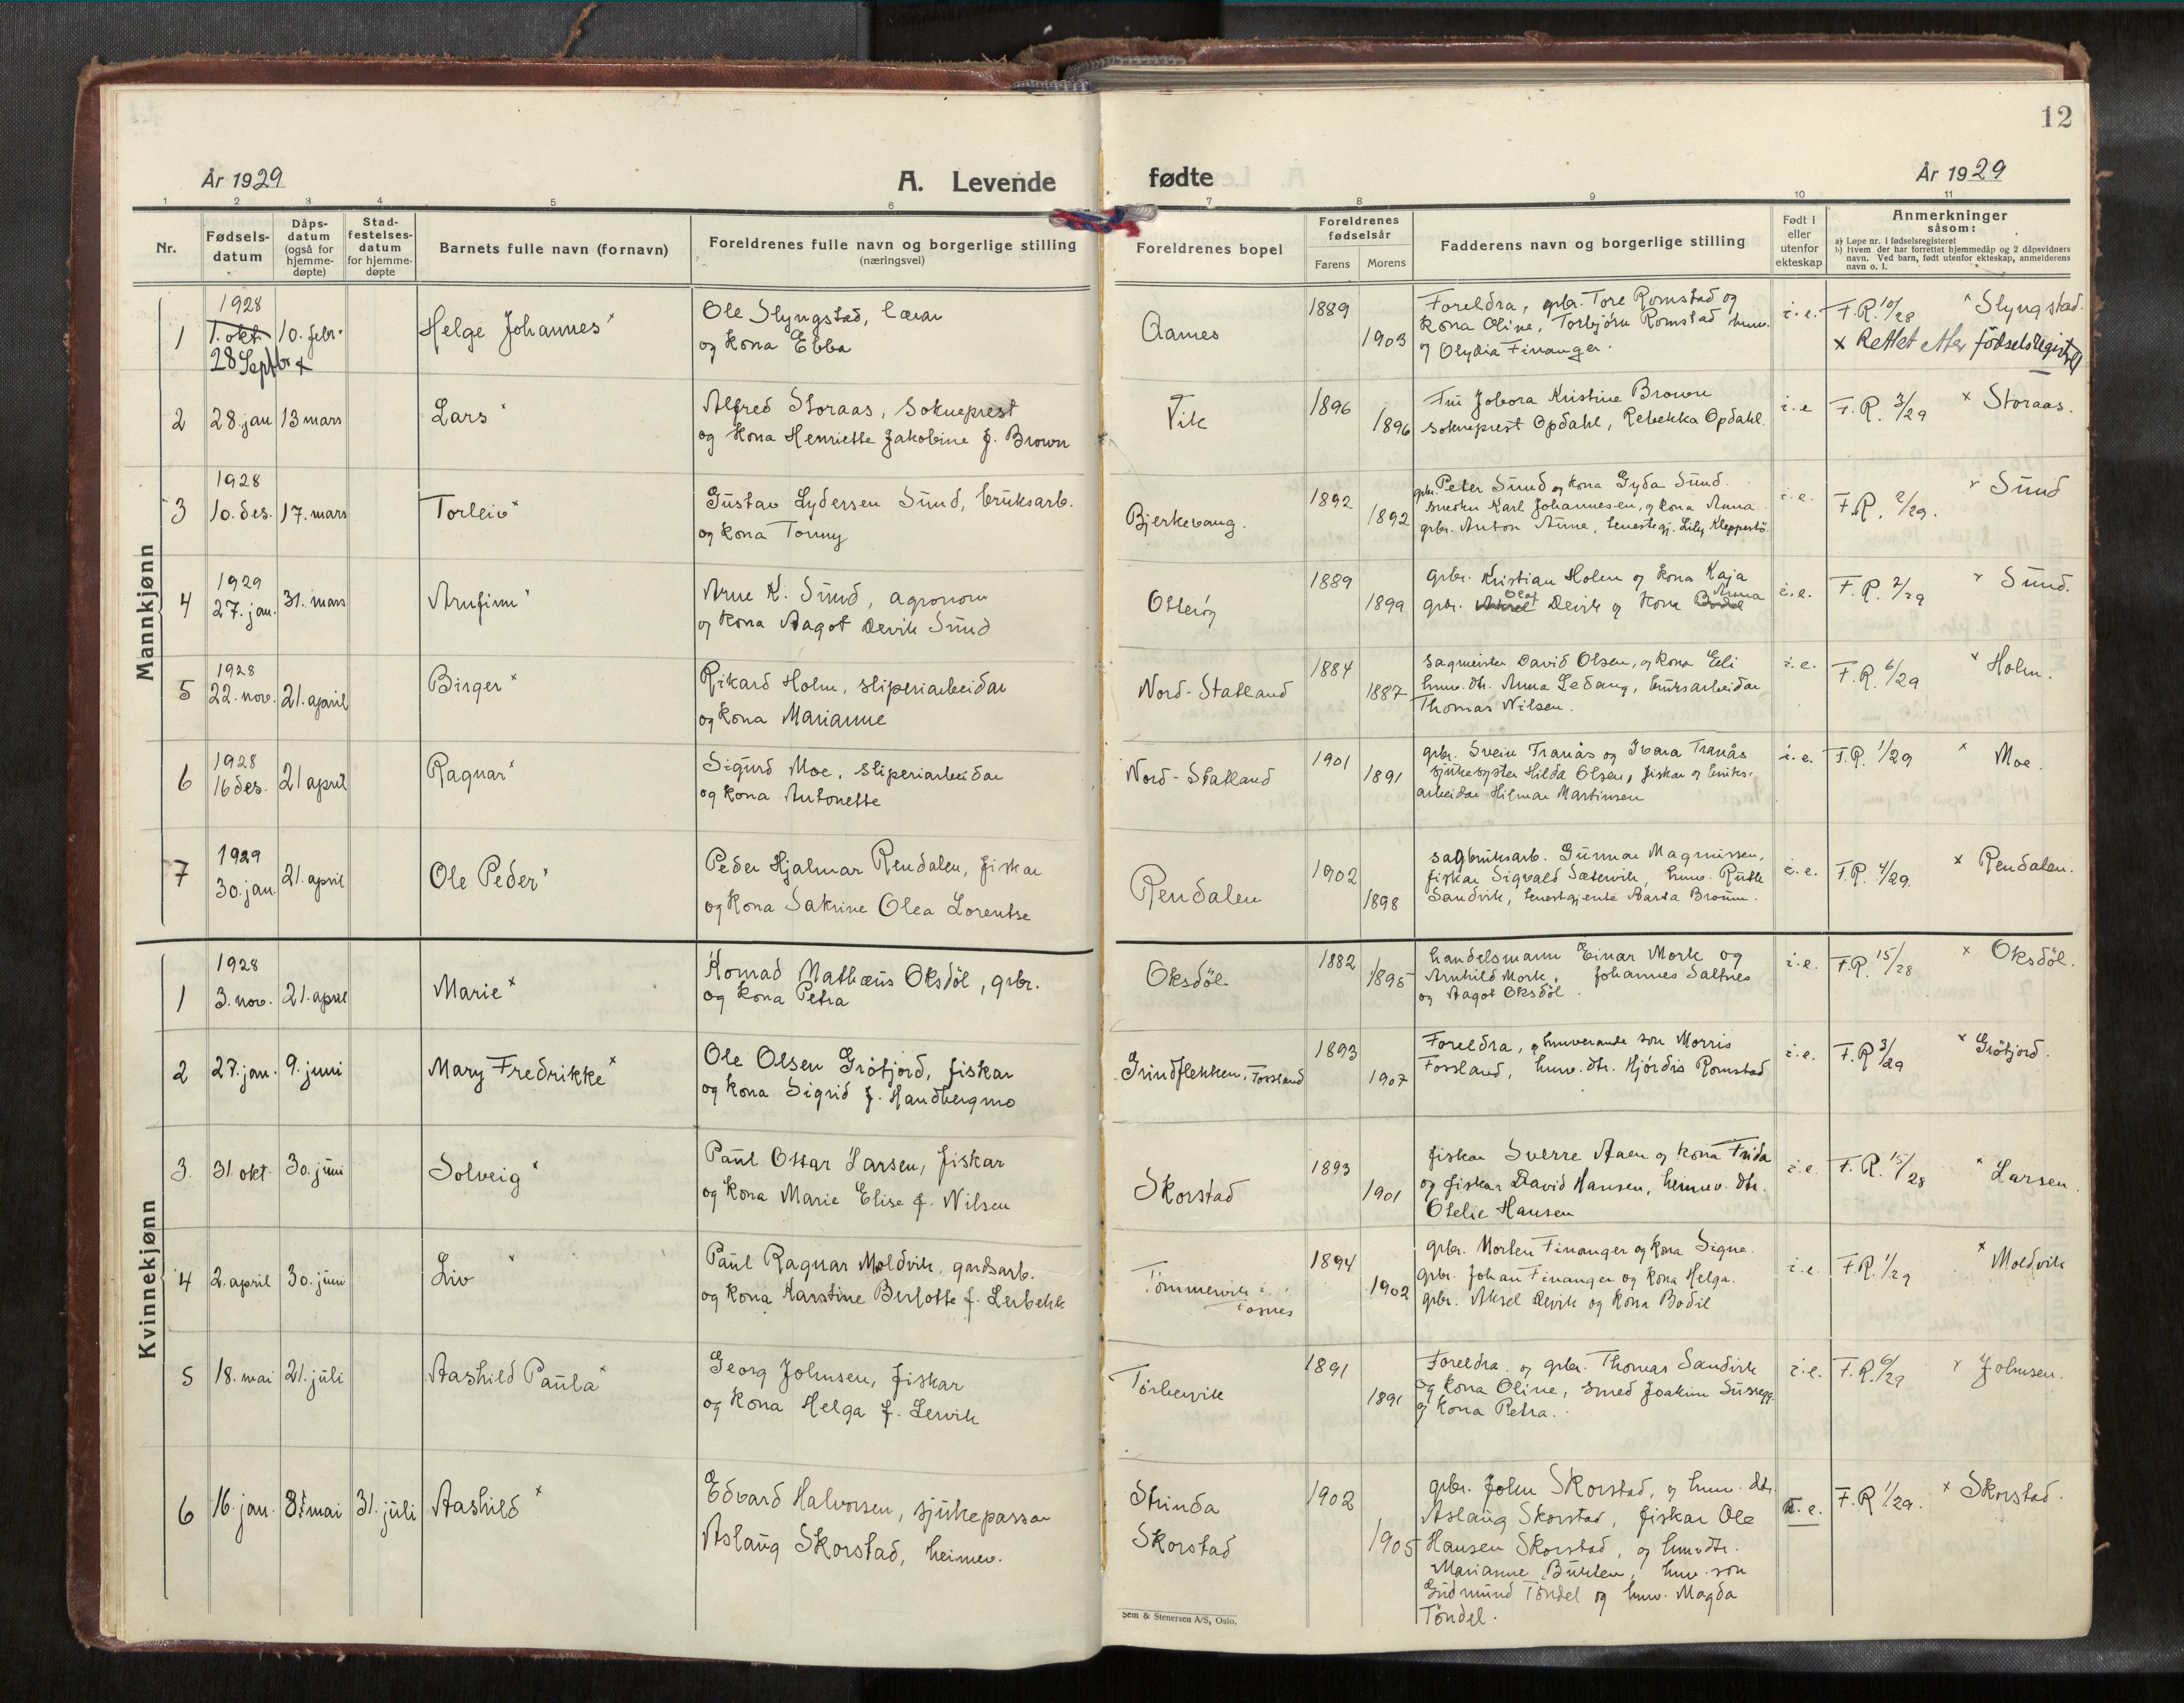 12
År 1929
A. Levende
fødte
År 1929
1 2 3 4 5 6 7 8 9 10 11
Nr.
Fødsels-
datum
Dåps-
datum
(også for
hjemme-
døpte)
Stad-
festelses-
datum
for hjemme-
døpte
Barnets fulle navn (fornavn)
Foreldrenes fulle navn og borgerlige stilling
(næringsvei)
Foreldrenes bopel
Foreldrenes
fødselsår
Farens Morens
Fadderens navn og borgerlige stilling
Født i
eller
utenfor
ekteskap
Anmerkninger
såsom:
a) Løpe nr. i fødselsregisteret
b) Hvem der har forrettet hjemmedåp og 2 dåpsvidners
navn. Ved barn, født utenfor ekteskap, anmelderens
navn o. l.
Mannkjønn
1
1928
1. okt.
28 Septbr x
10. febr.
Helge Johannes x
Ole Slyngstad, lærar
og kona Ebba
Aarnes
1889
1903
Foreldra, grbr. Tore Romstad og
kona Oline, Torbjørn Romstad hmv.
og Olydia Finanger.
i.e.
F.R. 10/28 x Slyngstad.
x Rettet etter fødselsregistret
2
28. jan
13 mars
Lars x
Alfred Storaas, sokneprest
og kona Henriette Jakobine f. Brown
Vik
1896
1896
Fru Jobora Kristine Brown
sokneprest Opdahl, Rebekka Opdahl.
i.e
F.R. 3/29 x Storaas.
3
1928
10. des.
17. mars
Torleiv x
Gustav Lydersen Sund, bruksarb.
og kona Tonny
Bjerkevang.
1892
1892
grbr. Peter Sund og kona Gyda Sund.
snekker Karl Johannesen, og kona Anna
grbr. Anton Aune, tenestegj. Lily Kleppestø.
i.e.
F.R. 2/29. x Sund
4
1929
27. jan.
31. mars
Arnfinn x
Arne K. Sund, agronom
og kona Aagot Devik Sund
Otterøy
1889
1899
grbr. Kristian Holen og kona Kaja
Olaf Anna
grbr. Aksel Devik og kona Bodil
i.e.
F.R. 2/29 x Sund.
5
1928
22. nov.
21. april
Birger x
Rikard Holm, sliperiarbeidar
og kona Marianne
Nord-Statland
1884
1887
sagmeister David Olsen, og kona Eeli
hmv. dtr. Anna Ledang, bruksarbeidar
Thomas Nilsen.
i.e.
F.R. 6/29 x Holm.
6
1928
16 des.
21 april
Ragnar x
Sigurd Moe, sliperiarbeidar
og kona Antonette
Nord-Statland
1901
1891
grbr. Svein Tranås og Ivara Tranås
sjukesyster Hilda Olsen, fiskar og bruks-
arbeidar Hilmar Martinsen
i.e.
F.R. 1/29 x Moe.
7
1929
30. jan.
21. april
Ole Peder x
Peder Hjalmar Rendalen, fiskar
og kona Sakrine Olea Lorentse
Rendalen
1902
1898
sagbruksarb. Gunnar Magnussen,
fiskar Sigvald Sætervik, hmv. Ruth
Sandvik, tenestgjente Marta Broum.
i.e.
F.R. 4/29. x Rendalen.
Kvinnekjønn
1
1928
3. nov.
21. april
Marie x
Konrad Mathæus Oksdøl, grbr.
og kona Petra
Oksdøl.
1882
1895
handelsmann Einar Mork og
Arnhild Mork, Johannes Saltnes
og Aagot Oksdøl.
i.e.
F.R. 15/28 x Oksdöl.
2
27. jan.
9. juni
Mary Fredrikke x
Ole Olsen Grötfjord, fiskar
og kona Sigrid f. Handbergmo
Grindflekken, Fossland
1893
1907
Foreldra, og hmverande son Morris
Fossland, hmv. dtr. Hjördis Romstad
i.e.
F.R 3/29 x Grötfjord.
3.
31. okt.
30. juni
Solveig x
Paul Ottar Larsen, fiskar
og kona Marie Elise f. Nilsen
Skorstad
1893
1901
fiskar Sverre Aaen og kona Frida
og fiskar David Hansen, heimev. dtr.
Otelie Hansen
i.e.
F.R. 15/28 x Larsen.
4
2. april
30. juni
Liv x
Paul Ragnar Moldvik, gardsarb.
og kona Karstine Berlotte f. Lerbekk
Tömmervik i
Fosnes
1894
1902
grbr. Morten Finanger og kona Signe.
grbr. Johan Finanger og kona Helga.
grbr. Aksel Devik og kona Bodil
i.e.
F.R. 1/29 x Moldvik
5
18. mai
21. juli
Aashild Paula x
Georg Johnsen, fiskar
og kona Helga f. Lervik
Tørhervik
1891
1891
Foreldra og grbr. Thomas Sandvik
og kona Oline, smed Joakim
og kona Petra.
i.e.
F.R. 6/29 x Johnsen.
6
16. jan.
8. mai
31. juli
Aashild x
Edvard Halvorsen, sjukepassar
Aslaug Skorstad, heimev.
Strinda
Skorstad
1902
1905
grbr. John Skorstad, og hmv. dtr.
Aslaug Skorstad, fiskar Ole
Hansen Skorstad, og hmvdtr.
Marianne Buvlen, hmv. son
Gudmund Töndel og hmv. Magda
Töndel.
u.e.
F.R 1/29. x Skorstad.
Sem & Stenersen A/S, Oslo.